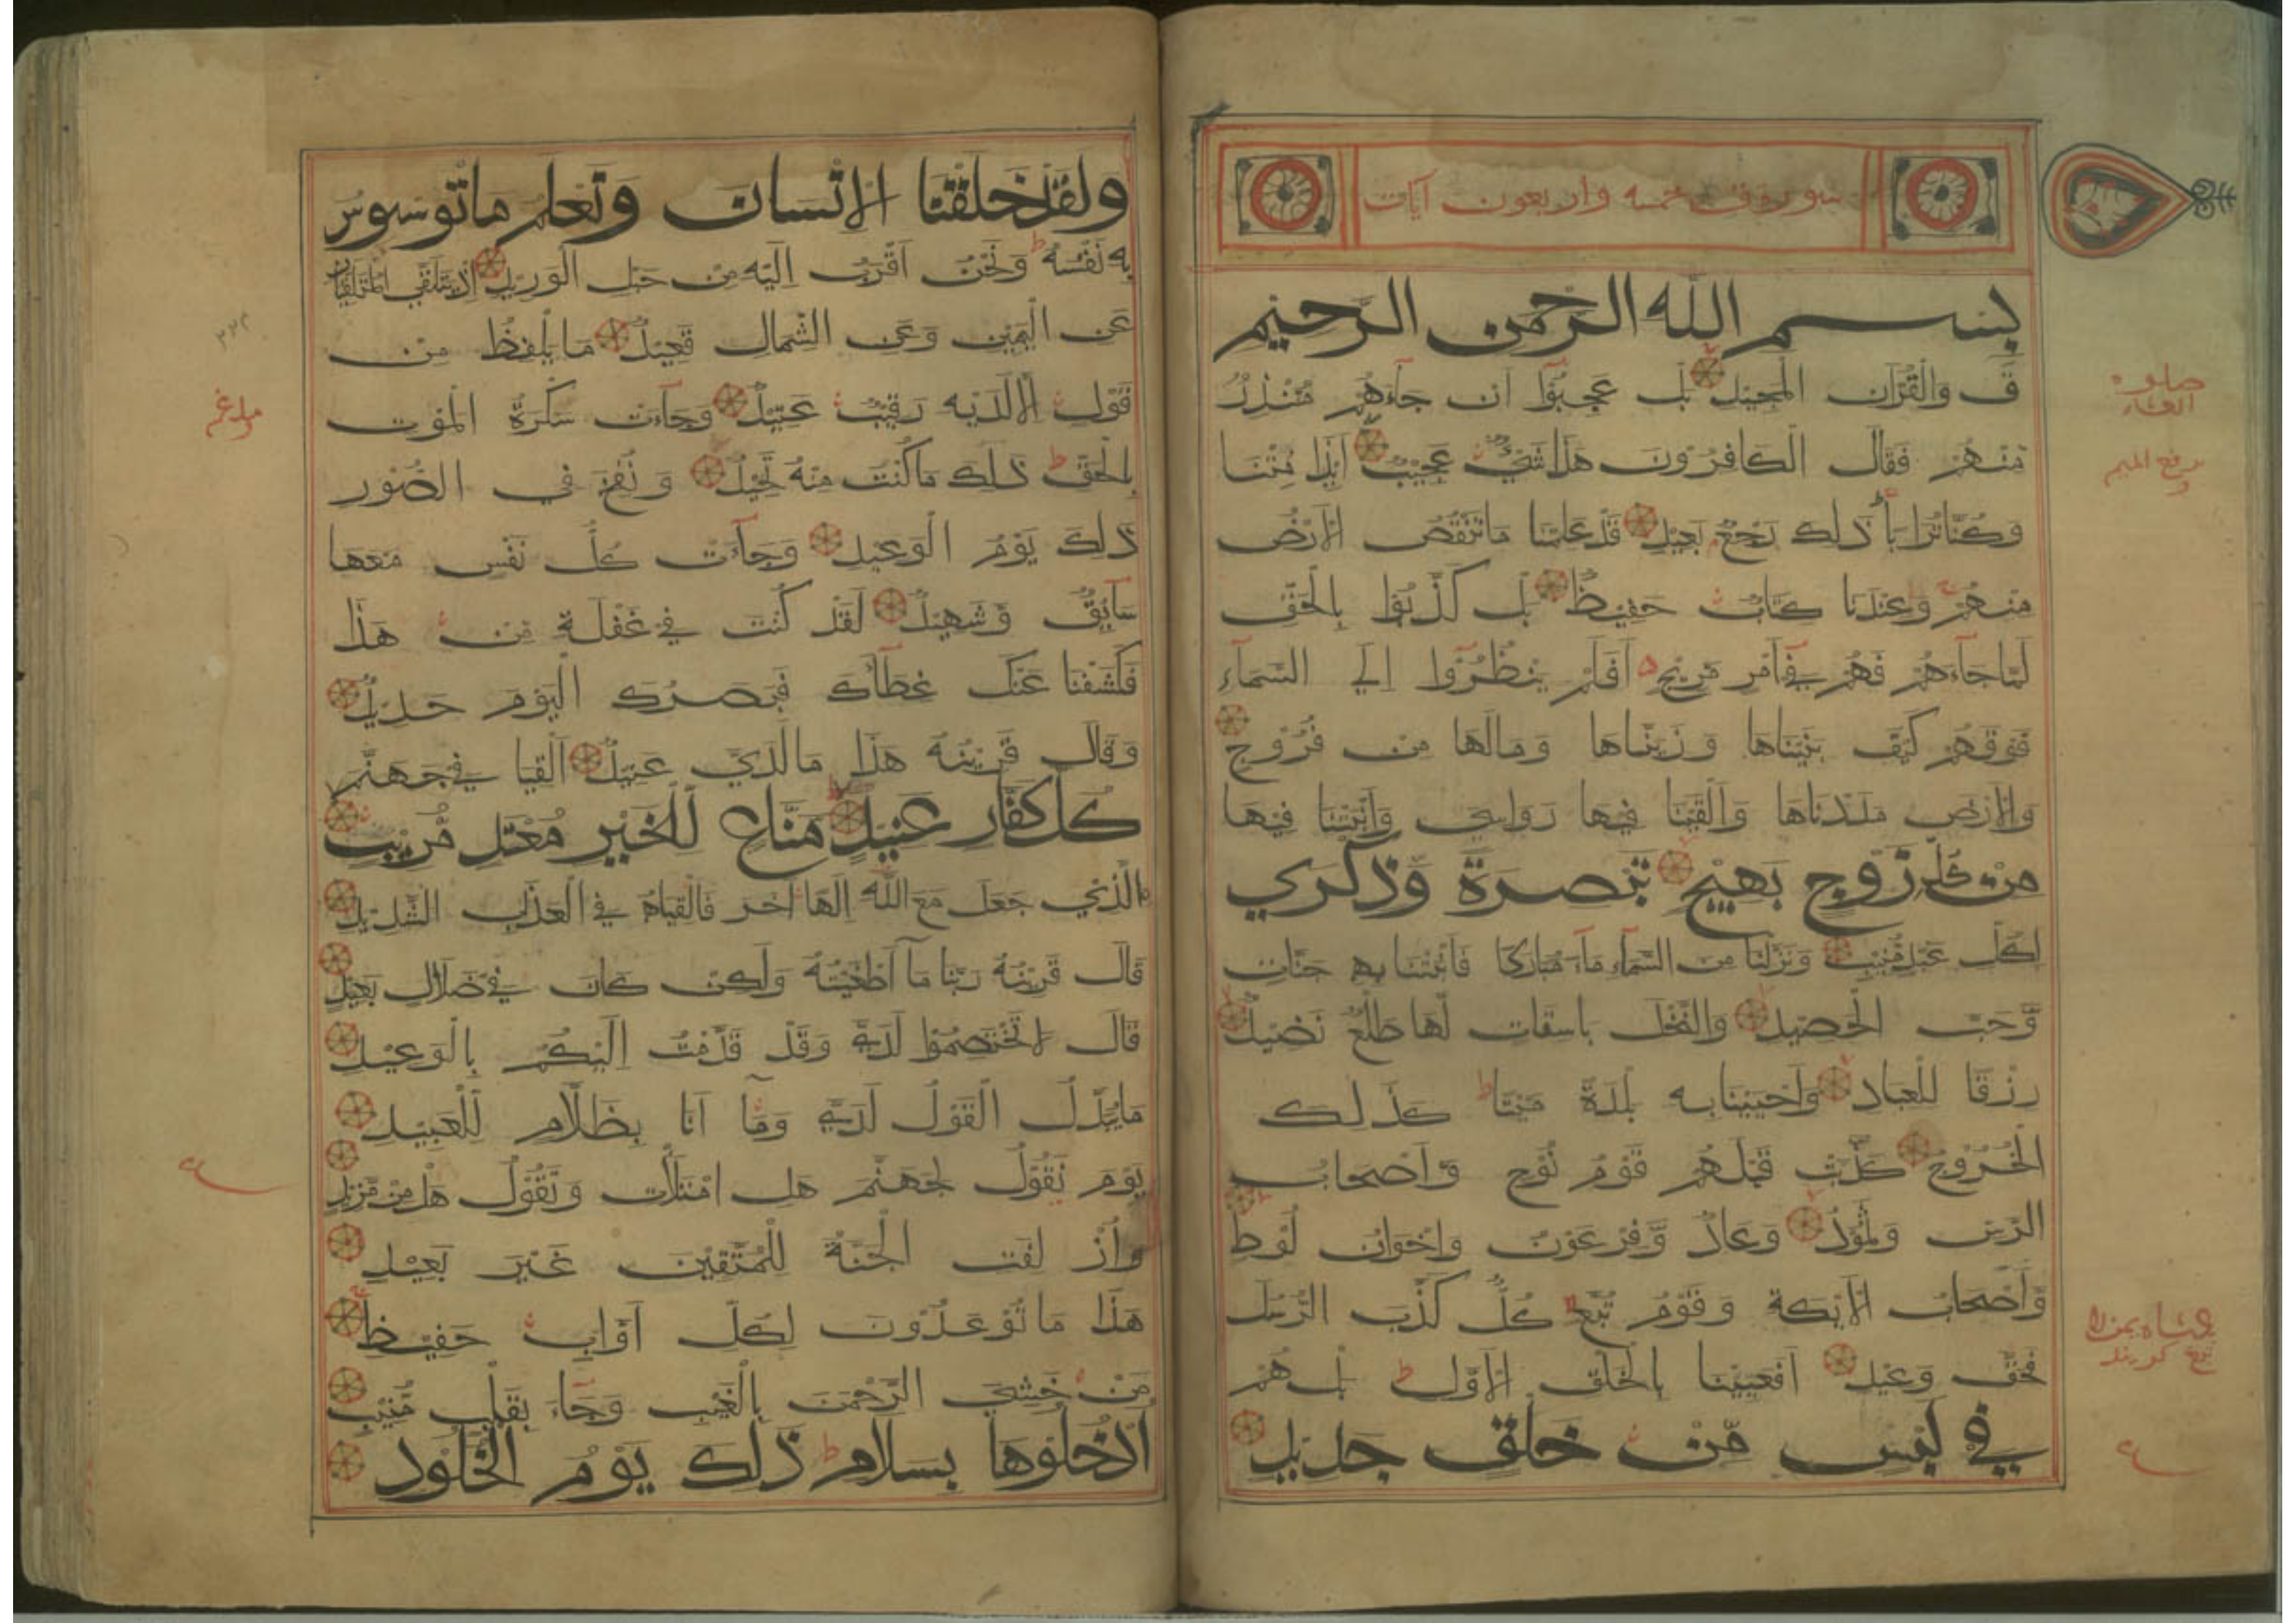 سورة ق خمسة واربعون آيات
بسم الله الرحمن الرحيم
قۤ وَالْقُرْآنِ الْمَجِيْدِ بَلْ عَجِبُوْا اَنْ جَاۤءَهُمْ مُنْذِرٌ
مِنْهُمْ فَقَالَ الْكَافِرُوْنَ هٰذَا شَيْءٌ عَجِيْبٌ اَئِذَا مِتْنَا
وَكُنَّا تُرَابًا ذٰلِكَ رَجْعٌ بَعِيْدٌ قَدْ عَلِمْنَا مَا تَنْقُصُ الْاَرْضُ
مِنْهُمْ وَعِنْدَنَا كِتَابٌ حَفِيْظٌ بَلْ كَذَّبُوْا بِالْحَقِّ
لَمَّا جَاۤءَهُمْ فَهُمْ فِيْۤ اَمْرٍ مَرِيْجٍ اَفَلَمْ يَنْظُرُوْۤا اِلَي السَّمَاۤءِ
فَوْقَهُمْ كَيْفَ بَنَيْنَاهَا وَزَيَّنَّاهَا وَمَالَهَا مِنْ فُرُوْجٍ
وَالْاَرْضَ مَدَدْنَاهَا وَاَلْقَيْنَا فِيْهَا رَوَاسِيَ وَاَنْبَتْنَا فِيْهَا
مِنْ كُلِّ زَوْجٍ بَهِيْجٍ تَبْصِرَةً وَّذِكْرٰي
لِكُلِّ عَبْدٍ مُّنِيْبٍ وَنَزَّلْنَا مِنَ السَّمَاۤءِ مَاۤءً مُّبَارَكًا فَاَنْبَتْنَا بِهِ جَنَّاتٍ
وَّحَبَّ الْحَصِيْدِ وَالنَّخْلَ بَاسِقَاتٍ لَّهَا طَلْعٌ نَضِيْدٌ
رِزْقًا لِلْعِبَادِ وَاَحْيَيْنَا بِهِ بَلْدَةً مَيْتًا كَذٰلِكَ
الْخُرُوْجُ كَذَّبَتْ قَبْلَهُمْ قَوْمُ نُوْحٍ وَّاَصْحَابُ
الرَّسِّ وَثَمُوْدُ وَعَادٌ وَّفِرْعَوْنُ وَاِخْوَانُ لُوْطٍ
وَّاَصْحَابُ الْاَيْكَةِ وَقَوْمُ تُبَّعٍ كُلٌّ كَذَّبَ الرُّسُلَ
فَحَقَّ وَعِيْدِ اَفَعَيِيْنَا بِالْخَلْقِ الْاَوَّلِ بَلْ هُمْ
فِي لَبْسٍ مِّنْ خَلْقٍ جَدِيْدٍ
وَلَقَدْ خَلَقْنَا الْاِنْسَانَ وَنَعْلَمُ مَا تُوَسْوِسُ
بِهِ نَفْسُهُ وَنَحْنُ اَقْرَبُ اِلَيْهِ مِنْ حَبْلِ الْوَرِيْدِ اِذْ يَتَلَقَّي الْمُتَلَقِّيَانِ
عَنِ الْيَمِيْنِ وَعَنِ الشِّمَالِ قَعِيْدٌ مَا يَلْفِظُ مِنْ
قَوْلٍ اِلَّا لَدَيْهِ رَقِيْبٌ عَتِيْدٌ وَجَاۤءَتْ سَكْرَةُ الْمَوْتِ
بِالْحَقِّ ذٰلِكَ مَا كُنْتَ مِنْهُ تَحِيْدُ وَنُفِخَ فِي الصُّوْرِ
ذٰلِكَ يَوْمُ الْوَعِيْدِ وَجَاۤءَتْ كُلُّ نَفْسٍ مَعَهَا
سَاۤئِقٌ وَّشَهِيْدٌ لَقَدْ كُنْتَ فِيْ غَفْلَةٍ مِنْ هٰذَا
فَكَشَفْنَا عَنْكَ غِطَاۤءَكَ فَبَصَرُكَ الْيَوْمَ حَدِيْدٌ
وَقَالَ قَرِيْنُهُ هٰذَا مَا لَدَيَّ عَتِيْدٌ اَلْقِيَا فِيْ جَهَنَّمَ
كُلَّ كَفَّارٍ عَنِيْدٍ مَنَّاعٍ لِّلْخَيْرِ مُعْتَدٍ مُّرِيْبٍ
الَّذِيْ جَعَلَ مَعَ اللّٰهِ اِلٰهًا اٰخَرَ فَاَلْقِيَاهُ فِي الْعَذَابِ الشَّدِيْدِ
قَالَ قَرِيْنُهُ رَبَّنَا مَاۤ اَطْغَيْتُهُ وَلٰكِنْ كَانَ فِيْ ضَلَالٍ بَعِيْدٍ
قَالَ لَا تَخْتَصِمُوْا لَدَيَّ وَقَدْ قَدَّمْتُ اِلَيْكُمْ بِالْوَعِيْدِ
مَا يُبَدَّلُ الْقَوْلُ لَدَيَّ وَمَاۤ اَنَا بِظَلَّامٍ لِّلْعَبِيْدِ
يَوْمَ نَقُوْلُ لِجَهَنَّمَ هَلِ امْتَلَأْتِ وَتَقُوْلُ هَلْ مِنْ مَّزِيْدٍ
وَاُزْلِفَتِ الْجَنَّةُ لِلْمُتَّقِيْنَ غَيْرَ بَعِيْدٍ
هٰذَا مَا تُوْعَدُوْنَ لِكُلِّ اَوَّابٍ حَفِيْظٍ
مَنْ خَشِيَ الرَّحْمٰنَ بِالْغَيْبِ وَجَاۤءَ بِقَلْبٍ مُّنِيْبٍ
اُدْخُلُوْهَا بِسَلَامٍ ذٰلِكَ يَوْمُ الْخُلُوْدِ